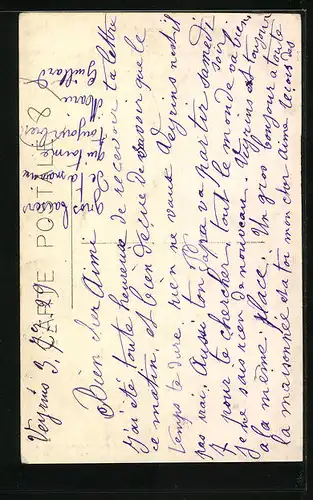 CARTE POSTALE
Veyrins 3/7/29
Bien cher Aimé
j'ai été toute heureuse de recevoir ta lettre
ce matin, et bien déçue de savoir que le
temps te dure rien ne vaux Veyrins n'est-il
pas vrai. Aussi ton papa va partir samedi soir
pour te chercher, tout le monde va bien
je ne sais rien de nouveau. Veyrins est toujours
à la même place. Un gros bonjour à toute
la maisonnée et à toi mon cher Aimé reçois des
gros baisers
de ta maman
qui t'aime
toujours